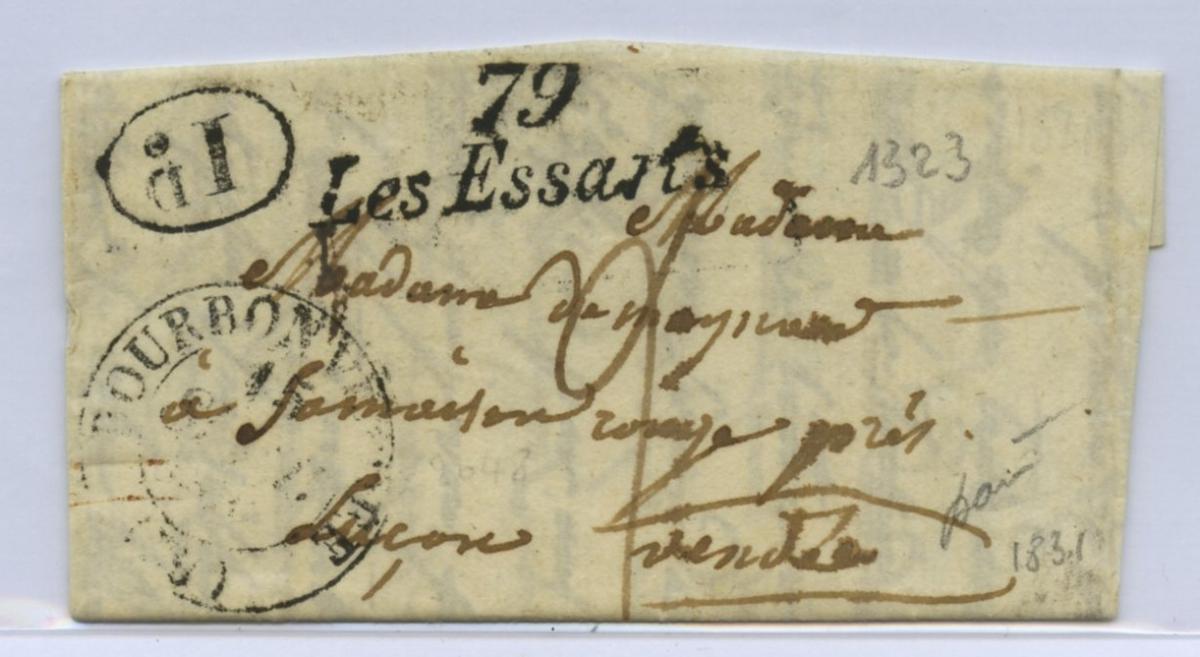 1D
79
Les Essarts
1323
Madame
Madame de
à sa maison rouge près
Luçon vendée
BOURBON VENDÉE
1831